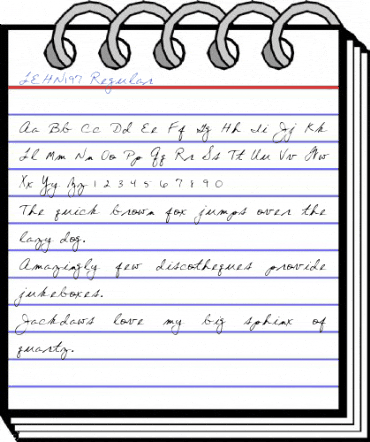 LEHN197 Regular
Aa Bb Cc Dd Ee Ff Gg Hh Ii Jj Kk
Ll Mm Nn Oo Pp Qq Rr Ss Tt Uu Vv Ww
Xx Yy Zz 1 2 3 4 5 6 7 8 9 0
The quick brown fox jumps over the
lazy dog.
Amazingly few discotheques provide
jukeboxes.
Jackdaws love my big sphinx of
quartz.